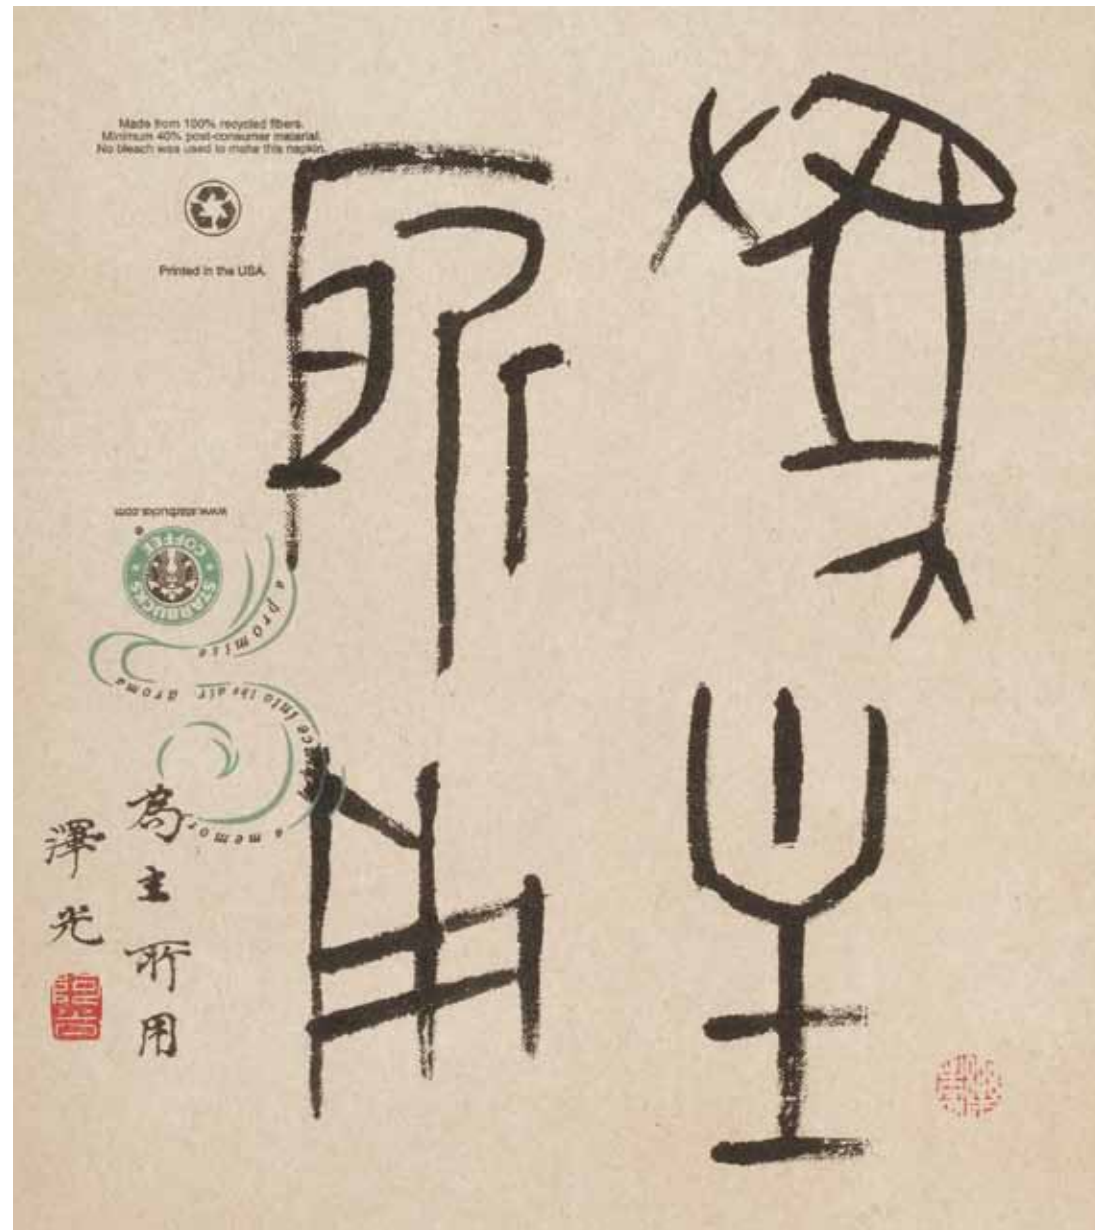 為主
所用
Made from 100% recycled fibers.
Minimum 40% post-consumer material.
No bleach was used to make this napkin.
Printed in the USA.
www.starbucks.com
STARBUCKS COFFEE
a promise
aroma
into the air
a memor
為主所用
澤光